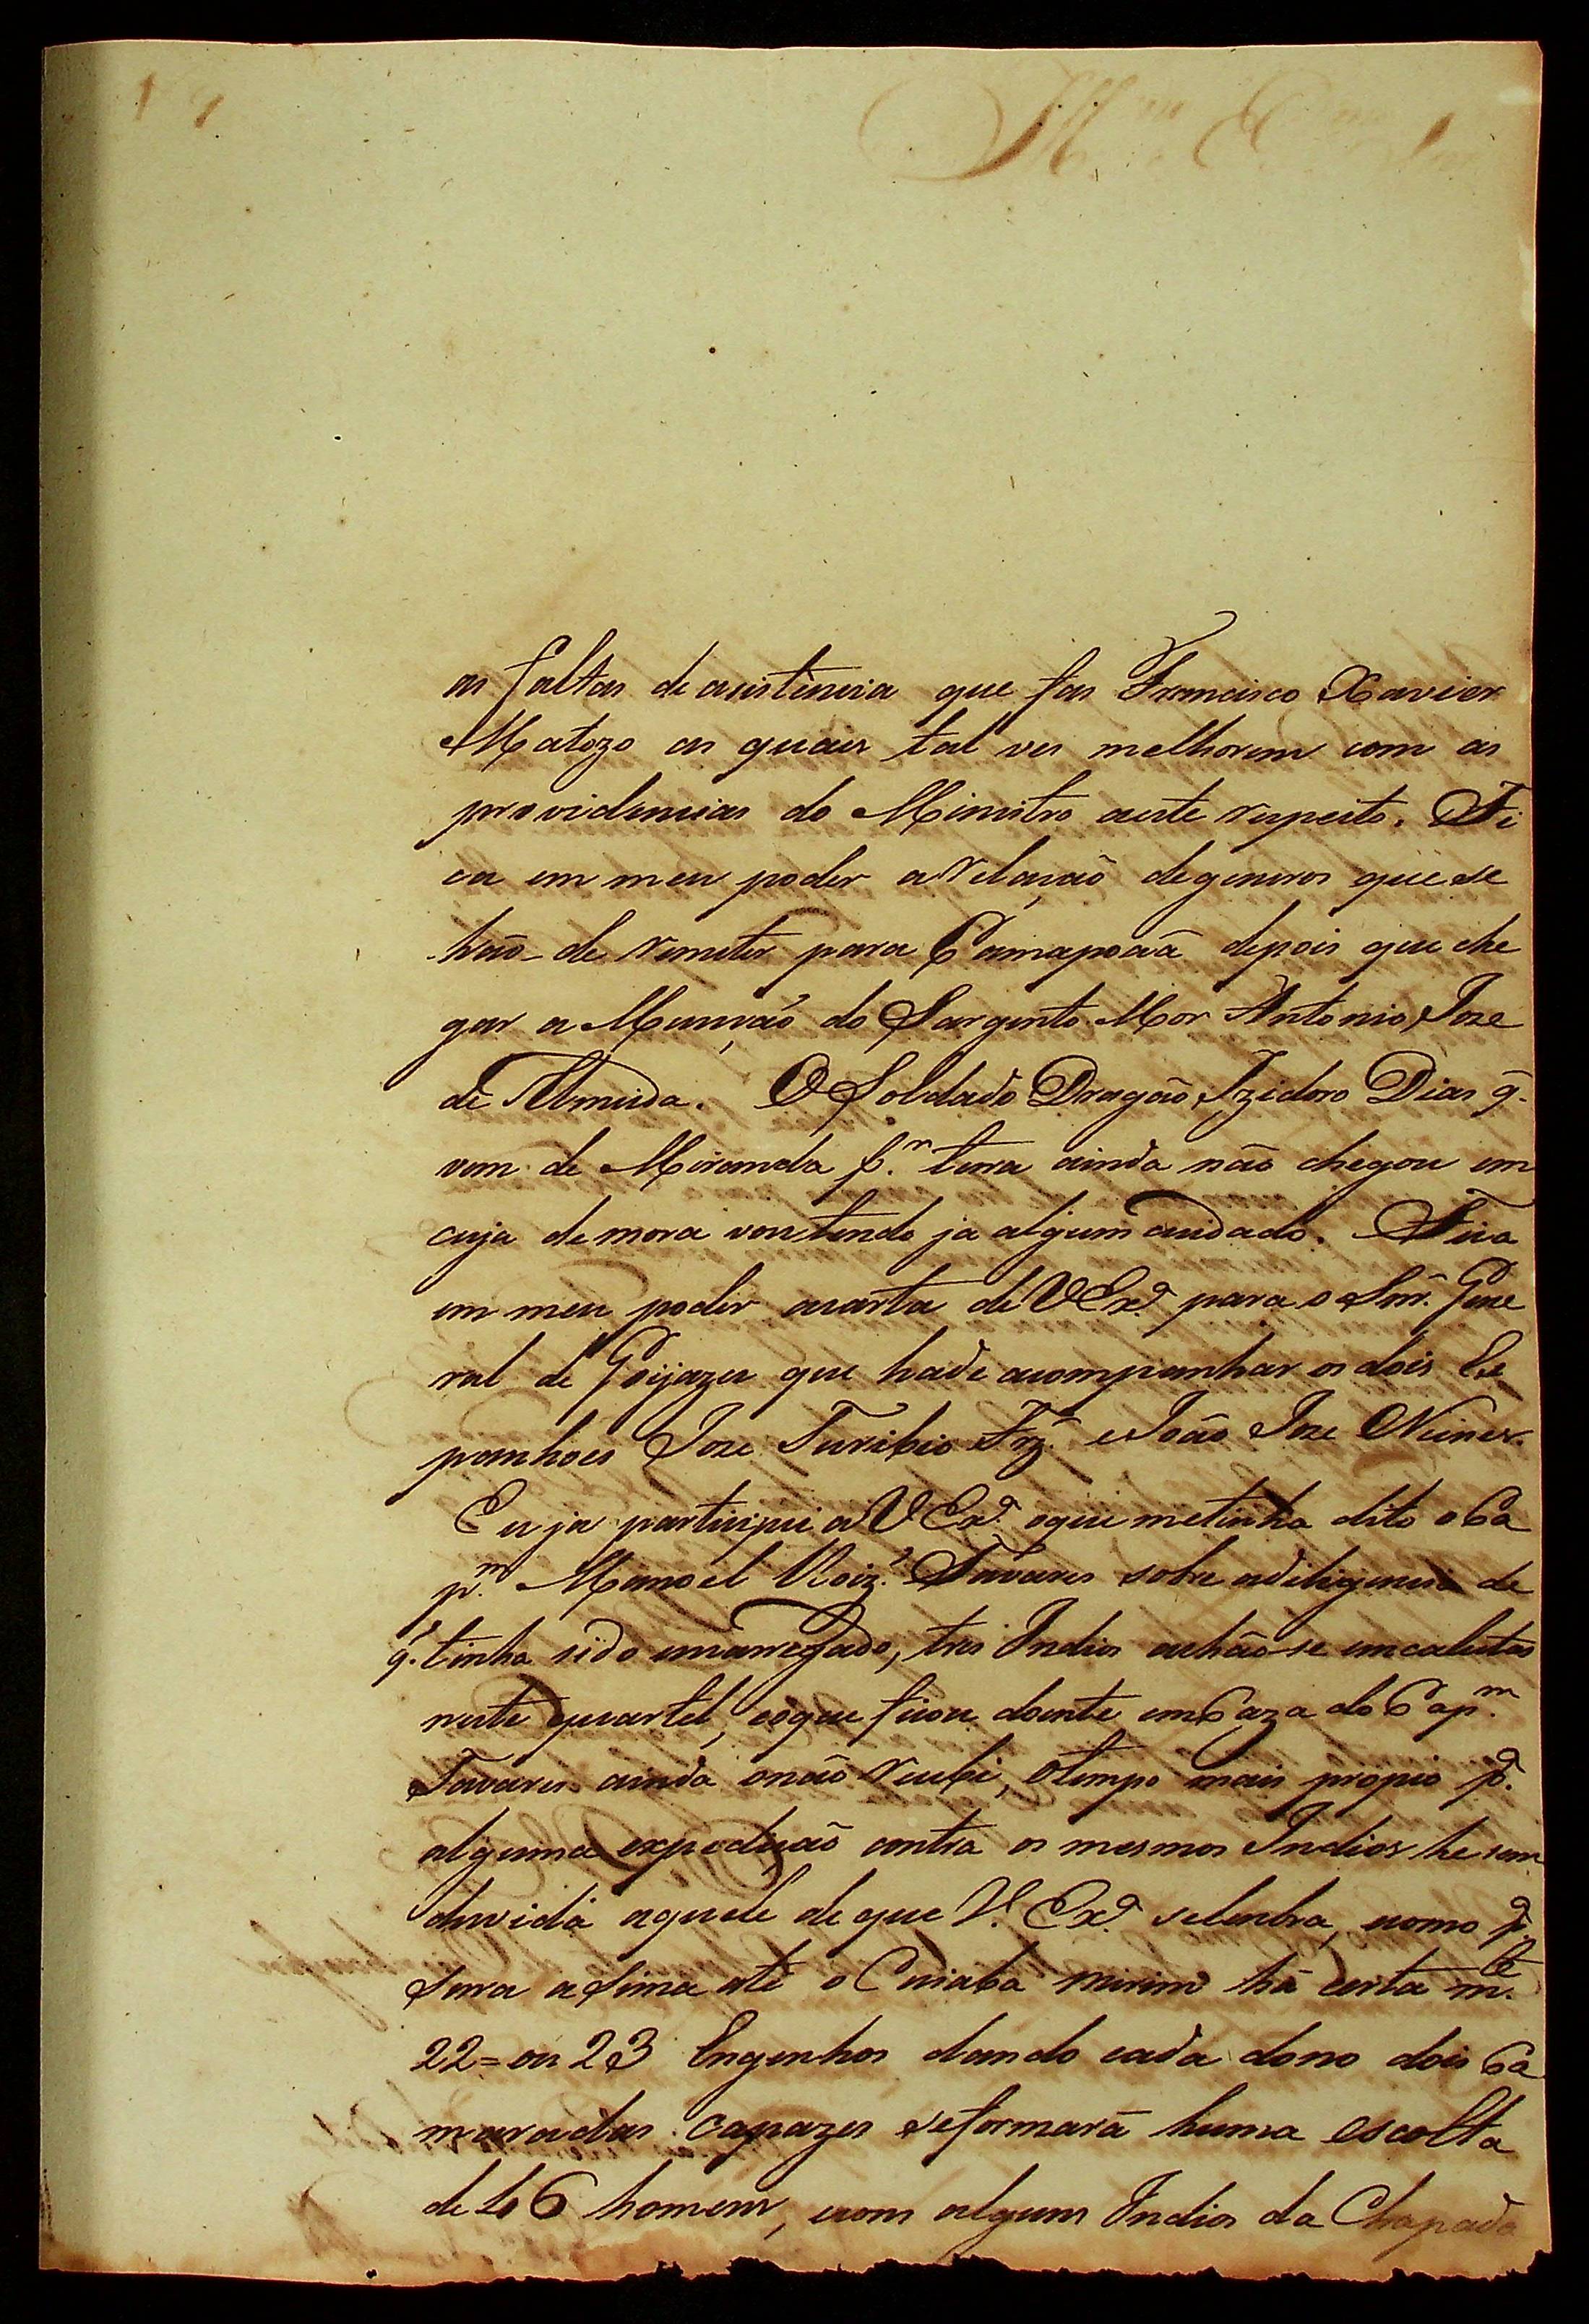 as faltas de asistencia que fas Francisco Xavier
Matozo as quais tal ves melhorem com as
providencias do Ministro aeste respeito. Fi
ca em meu poder a relação degeneros que se
hão de remeter para Camapoaã depois que che
gar a Munção do Sargento Mor Antonio Joze
de Almeida. O Soldado Dragão Izidoro Dias q̃.
vem de Miranda p.r terra ainda não chegou em
cuja demora vou tendo ja algum cuidado. Fica
em meu poder acarta de VEx.ª para o Snr. Gene
ral de Goijazes que hade acompanhar os dois Es
panhoes Joze Turibio Frz.ª e João Joze Nunes.
Eu ja participei a VEx.ª oque metinha dito o Ca
p.m Manoel Roiz.' Tavares sobre adiligencia de
q.' tinha sido encarregado, tres Indios achão-se emcaletas
neste quartel, eoque ficou doente em Caza do Cap.m
Tavares ainda onão recebi, Otempo mais propio p.ª
alguma expedição contra os mesmos Indios he sem
duvida aquele de que V. Ex.ª selenbra, como p.ª
Serra asima até o Cuiaba mirim há certa m.te
22= ou 23 Engenhos dando cada dono dois Ca
maradas capazes seformará huma escolta
de 46 homens, com alguns Indios da Chapada